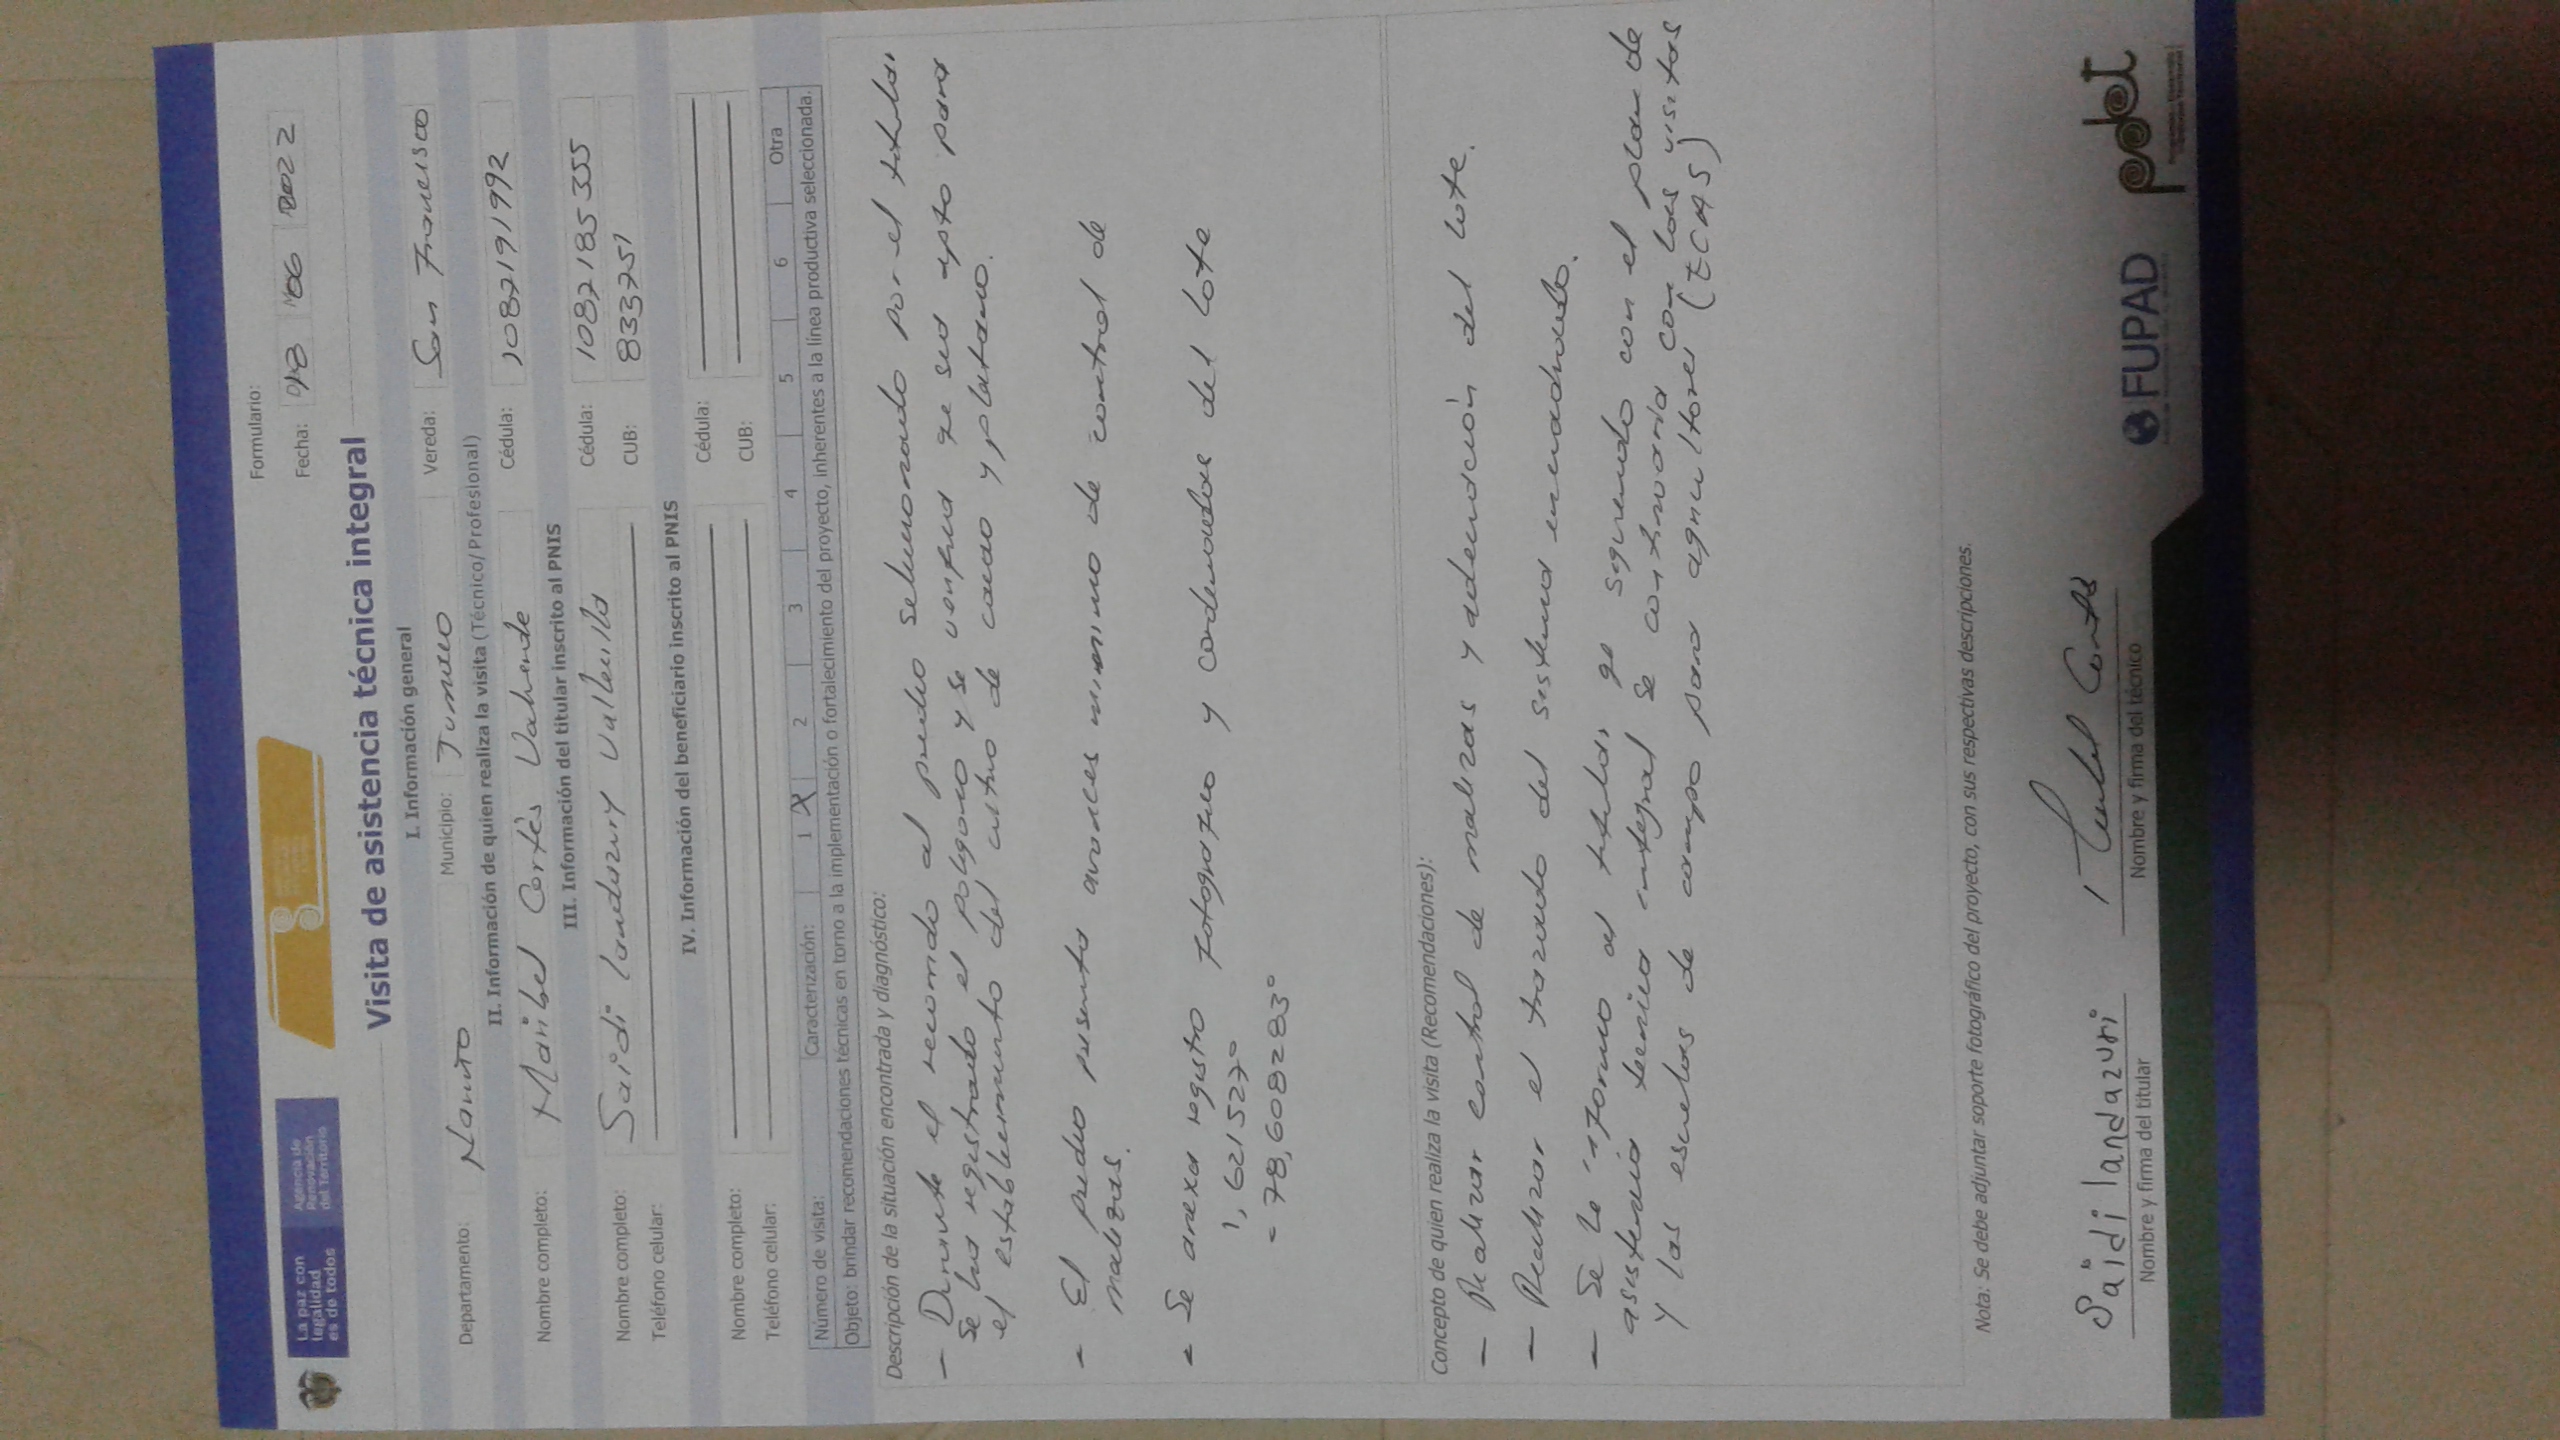 La paz con
legalidad
es de todos
Agencia de
Renovación
del Territorio
Formulario:
Fecha: 06 2022
Visita de asistencia técnica integral
I. Información general
Departamento: Nariño Municipio: Tumaco Vereda: San Francisco
II. Información de quien realiza la visita (Técnico/Profesional)
Nombre completo: Maribel Cortés Valverde Cédula: 1087191992
III. Información del titular inscrito al PNIS
Nombre completo: Saidi landazury Vallecilla Cédula: 1087185355
Teléfono celular: CUB: 833751
IV. Información del beneficiario inscrito al PNIS
Nombre completo: Cédula:
Teléfono celular: CUB:
Número de visita: Caracterización: 1 X 2 3 4 5 6 Otra
Objeto: brindar recomendaciones técnicas en torno a la implementación o fortalecimiento del proyecto, inherentes a la línea productiva seleccionada.
Descripción de la situación encontrada y diagnóstico:
- Durante el recorrido al predio seleccionado por el titular
se ha registrado el poligono y se verifica que sea apto para
el establecimiento del cultivo de cacao y platano.
- El predio presenta avances minimo de control de
malezas.
- Se anexa registro fotografico y cordenadas del lote
1,621527°
-78,608283°
Concepto de quien realiza la visita (Recomendaciones):
- Realizar control de malezas y adecuación del lote.
- Realizar el trazado del sistema encuadrado.
- Se le informo al titular, que siguiendo con el plan de
asistencia tecnica integral se continuaria con las visitas
y las escuelas de campo para agricultores (ECAS)
Nota: Se debe adjuntar soporte fotográfico del proyecto, con sus respectivas descripciones.
Saidi landazuri
Nombre y firma del titular
Maribel Cortés
Nombre y firma del técnico
FUPAD
pdet